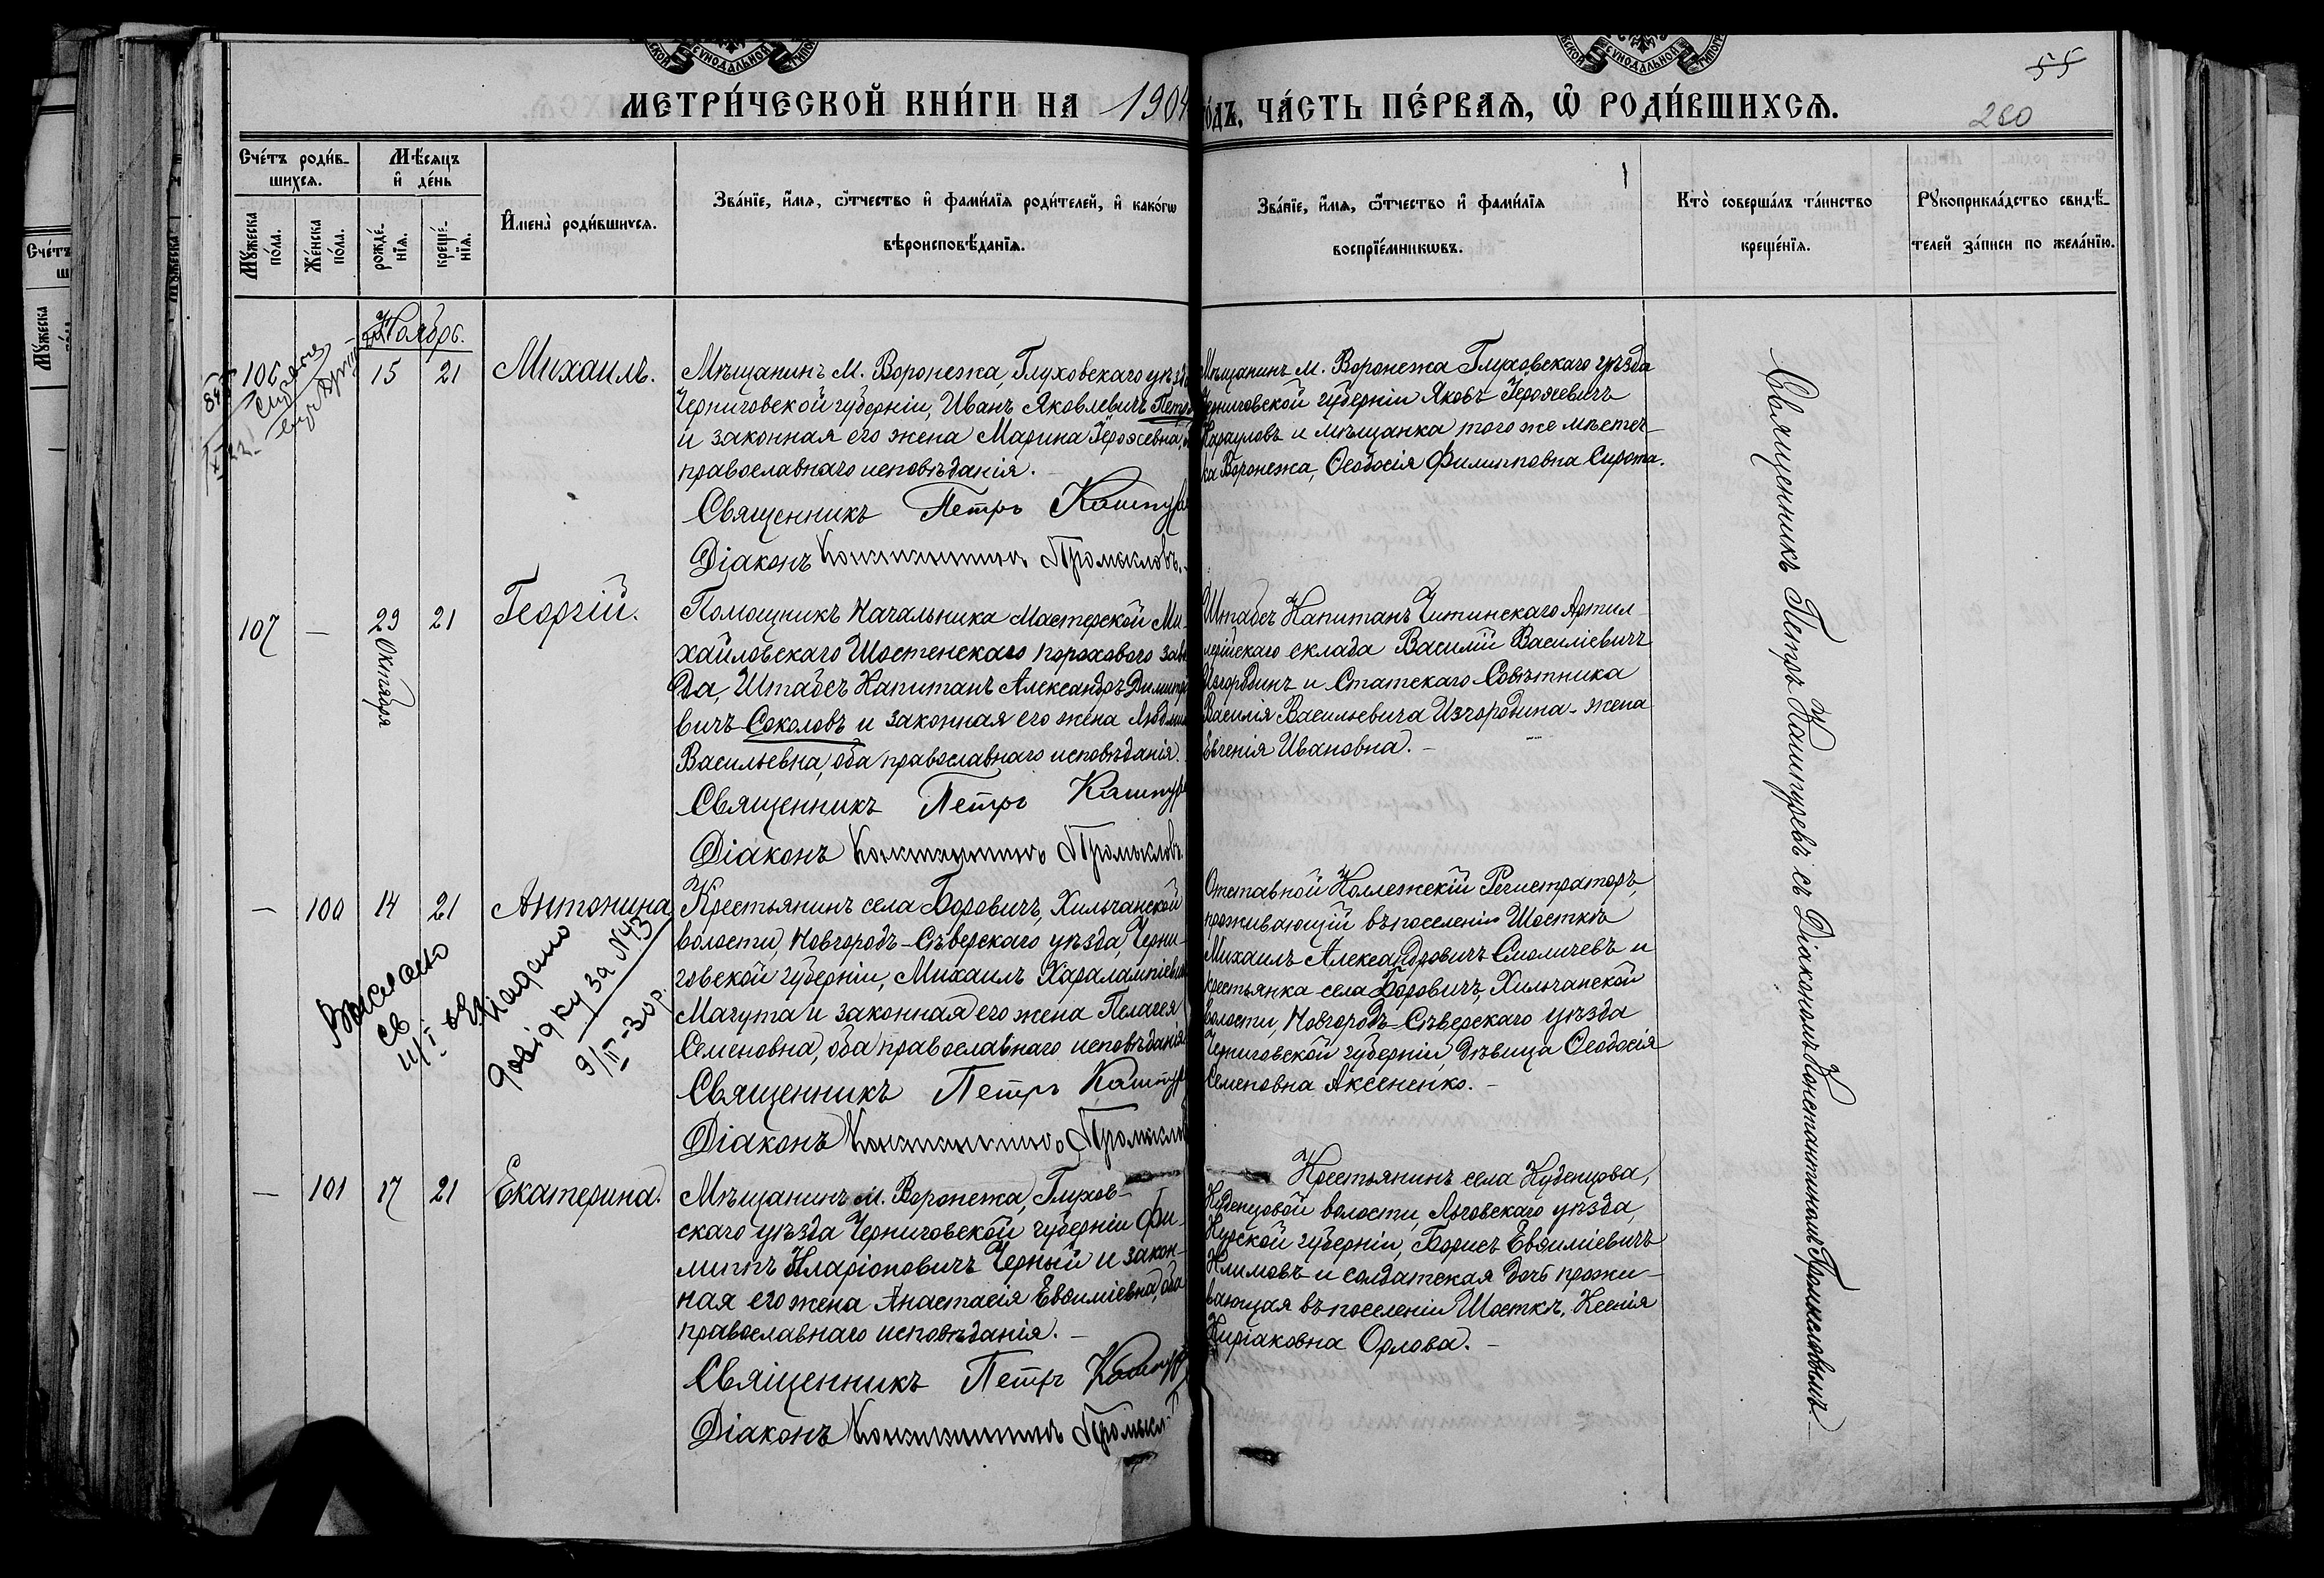 МЕТРИ́ЧЕСКОЙ КНИ́ГИ НА 1904
о́дъ, ЧА́СТЬ ПЕ́РВАѦ, Ѡ РОДИ́ВШИХСѦ.
55
260
Сче́тъ роди́в-
шихсѧ.
Мѣ́сѧцъ
и де́нь
Мꙋ́жеска
по́ла.
Же́нска
по́ла.
рожде́-
нїѧ.
креще́-
нїѧ.
Имена̀ роди́вшихсѧ.
Зва́нїе, и́мѧ, ѻ́тчество и фами́лїѧ роди́телей, и како́гѡ
вѣроисповѣ́данїѧ.
Зва́нїе, и́мѧ, ѻ́тчество и фами́лїѧ
воспрїе́мникѡвъ.
Кто̀ соверша́лъ та́инство
креще́нїѧ.
Рꙋкоприкла́дство свидѣ́-
телей за́писи по жела́нїю.
Ноябрь.
106 — 15 21 Михаилъ.
Мѣщанинъ м. Воронежа, Глуховскаго уѣзда
Черниговской губерніи, Иванъ Яковлевичъ
и законная его жена Марина Герасевна,
православнаго исповѣданія.
Священникъ Петръ Кашпур
Діаконъ Константинъ Промысловъ.
Мѣщанинъ м. Воронежа Глуховскаго уѣзда
Черниговской губерніи Яковъ
Карауловъ и мѣщанка того же мѣстеч-
ка Воронежа, Ѳеодосія Филипповна Сирота.
107 — 29 21 Георгій.
Октября
Помощникъ Начальника Мастерской Ми-
хайловскаго Шостенскаго порохового заво
да, Штабсъ Капитанъ Александръ Димитрі
вичъ Соколовъ и законная его жена Людмила
Васильевна, оба православнаго исповѣданія.
Священникъ Петръ Кашпур
Діаконъ Константинъ Промысловъ
Штабсъ Капитанъ Читинскаго Артил
лерійскаго склада Василій Василіевичъ
Изгородинъ и Статскаго Совѣтника
Василія Васильевича Изгородина - жена
Евгенія Ивановна. -
— 100 14 21 Антонина
Крестьянинъ села Боровичъ, Хильчанской
волости, Новгородъ-Сѣверскаго уѣзда, Черни-
говской губерніи, Михаилъ Харалампіевичъ
Мачута и законная его жена Пелагея
Семеновна, оба православнаго исповѣданія
Священникъ Петръ Кашпур
Діаконъ Константинъ Промыслов
Отставной Коллежскій Регистраторъ,
проживающій въ поселеніи Шосткѣ
Михаилъ Александровичъ Смоличевъ и
крестьянка села Боровичъ, Хильчанской
волости, Новгородъ-Сѣверскаго уѣзда
Черниговской губерніи, дѣвица Ѳеодосія
Семеновна Аксененко. -
Выслано
св.
Видано
довідку за N43
9/II-30 р.
— 101 17 21 Екатерина.
Мѣщанинъ м. Воронежа, Глухов-
скаго уѣзда Черниговской губерніи Фи-
липпъ Иларіоновичъ Черный и закон-
ная его жена Анастасія Евѳиміевна, оба
православнаго исповѣданія. -
Священникъ Петръ Кашпур
Діаконъ Константинъ Промысл
Крестьянинъ села Куденцова,
Куденцовой волости, Льговскаго уѣзда,
Курской губерніи, Борисъ Евѳиміевичъ
Климовъ и солдатская дочь прожи-
вающая въ поселеніи Шосткѣ, Ксенія
Киріаковна Орлова. -
Священникъ Петръ Кашпуревъ съ Діакономъ Константиномъ Промысловымъ